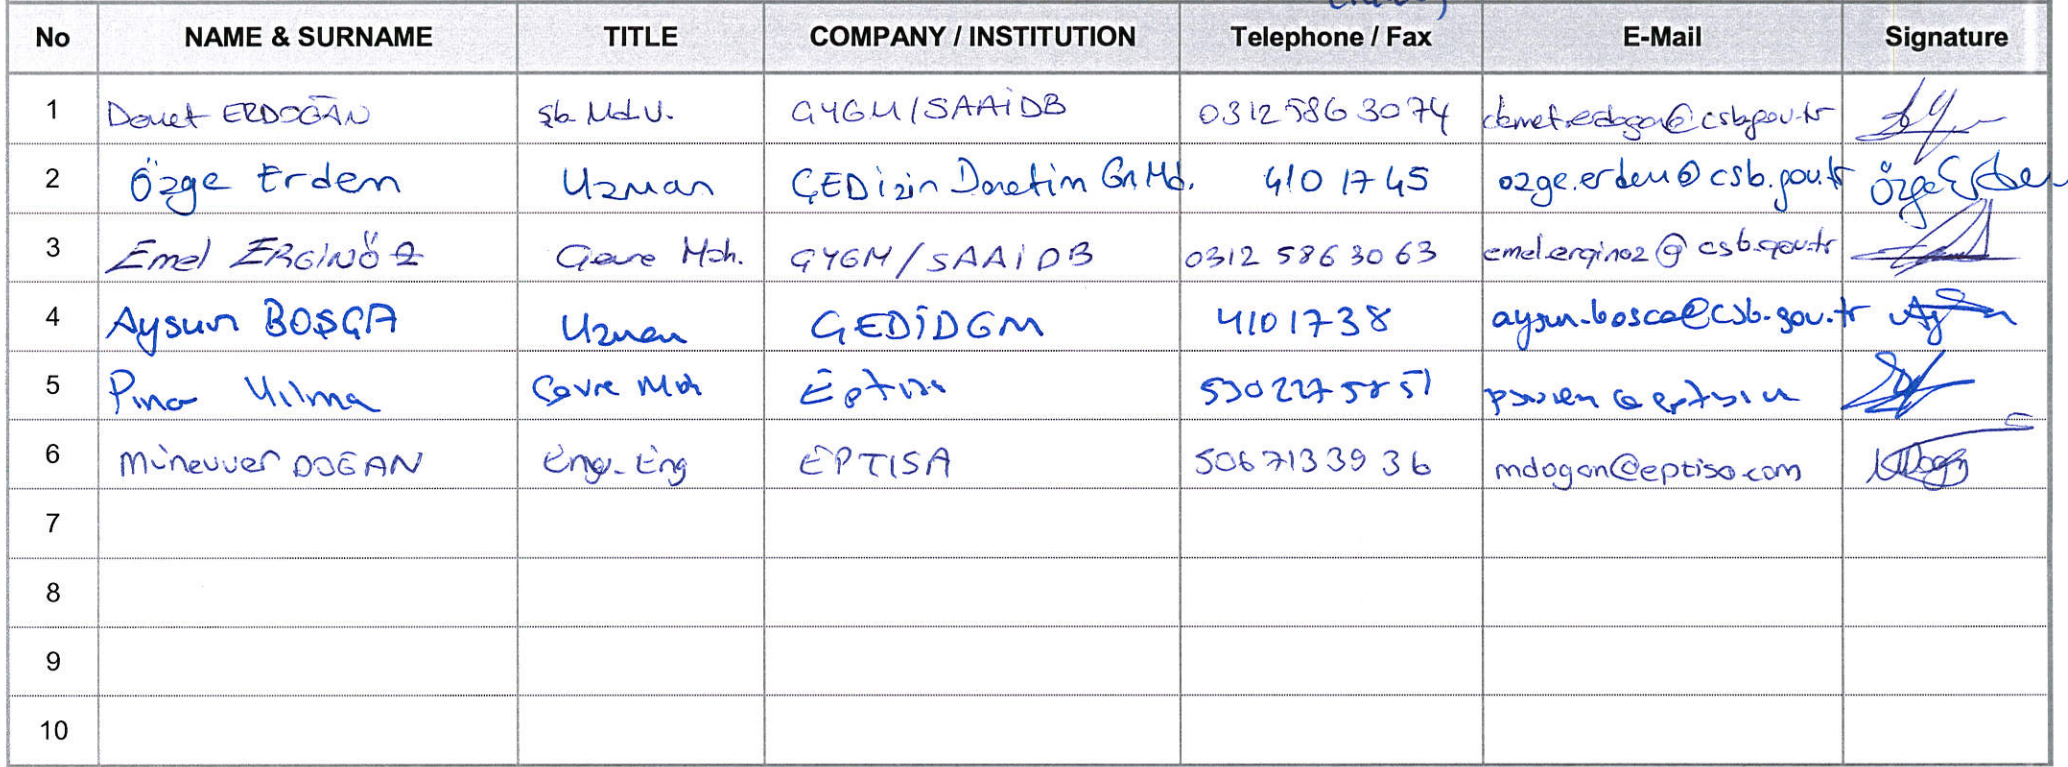 No NAME & SURNAME TITLE COMPANY / INSTITUTION Telephone / Fax E-Mail Signature
1 Demet ERDOĞAN Şb. Md. V. ÇYGM/SAAİDB 0312 586 30 74 demet.erdogan@csb.gov.tr
2 Özge Erdem Uzman ÇED izin Denetim Gn Md. 410 17 45 ozge.erdem@csb.gov.tr Özge Erdem
3 Emel ERGİNÖZ Çevre Müh. ÇYGM/SAAİDB 0312 586 30 63 emel.erginoz@csb.gov.tr
4 Aysun BOŞÇA Uzman ÇEDİDGM 410 17 38 aysun.bosca@csb.gov.tr
5 Pınar Yılma Çevre Müh Eptisa 530 227 58 51
6 Münevver DOĞAN Eng. EPTISA 506 713 39 36 mdogan@eptisa.com
7
8
9
10